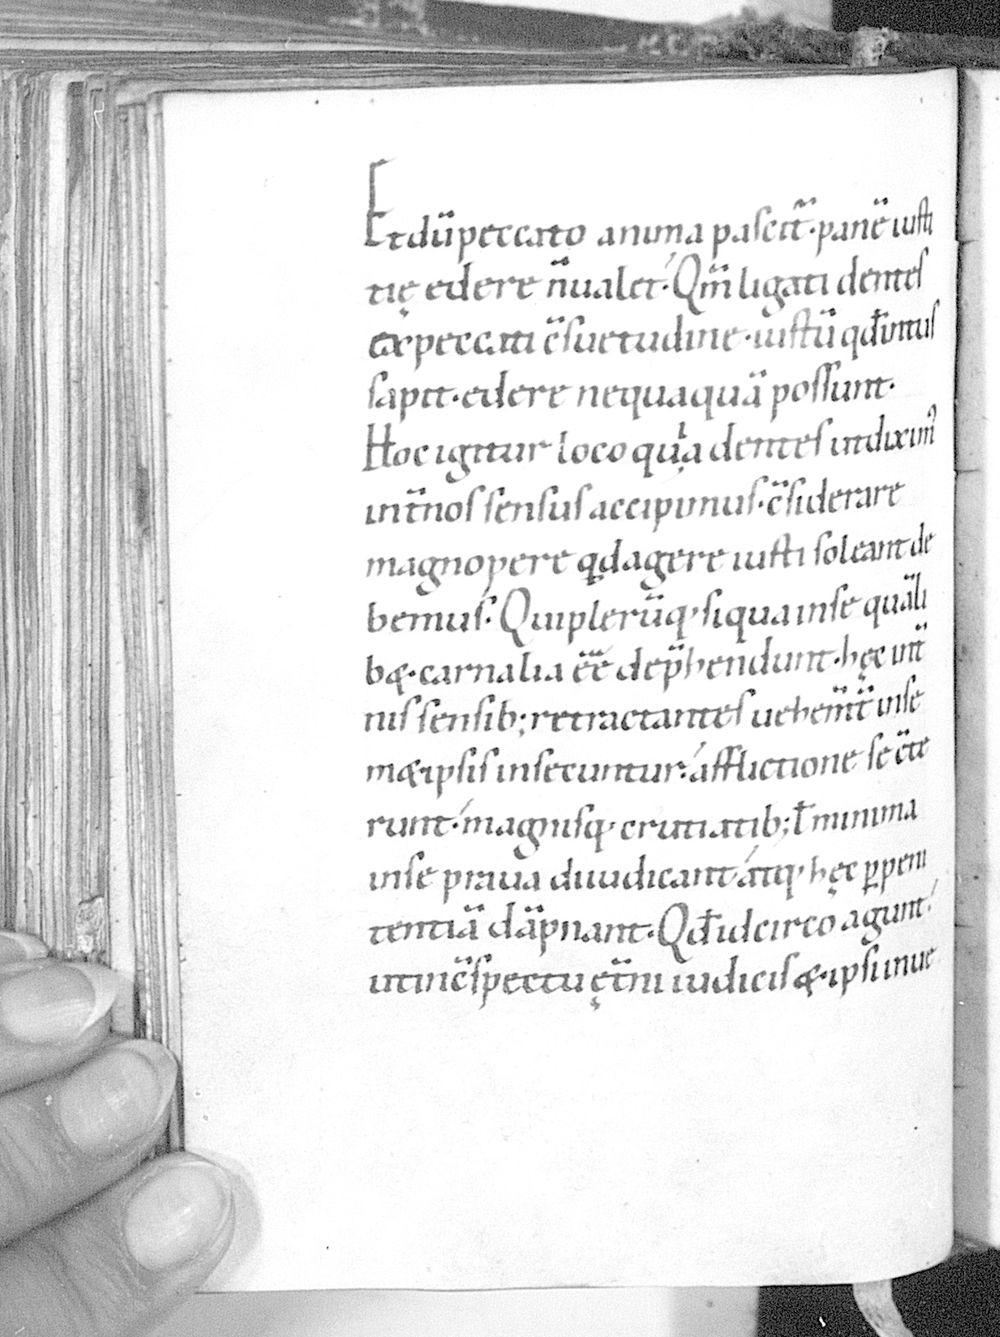 Et dū peccato anima pascit̄· panē iusti
tię edere n̄ ualet· Qm̄ ligati dentes
ex peccati c̄suetudine· iustū qd̄ intus
sapit· edere nequaquā possunt·
Hoc igitur loco quia dentes ut dixim᷒
int̄nos sensus accipimus· c̄siderare
magnopere qd agere iusti soleant de
bemus· Qui plerūq· si qua in se quāli
bæ· carnalia ēē dep̄hendunt· hęc int̄
nis sensib; retractantes uehem̄t̄ in se
mæipsis insecuntur· afflictione se c̄te
runt· magnisq· crutiatib; ł minima
in se praua diiudicant atq· hęc p̱ peni
tentiā dāpnant· Qd̄ idcirco agunt·
ut in c̄spectu ęt̄ni iudicis æ· ipsi inue